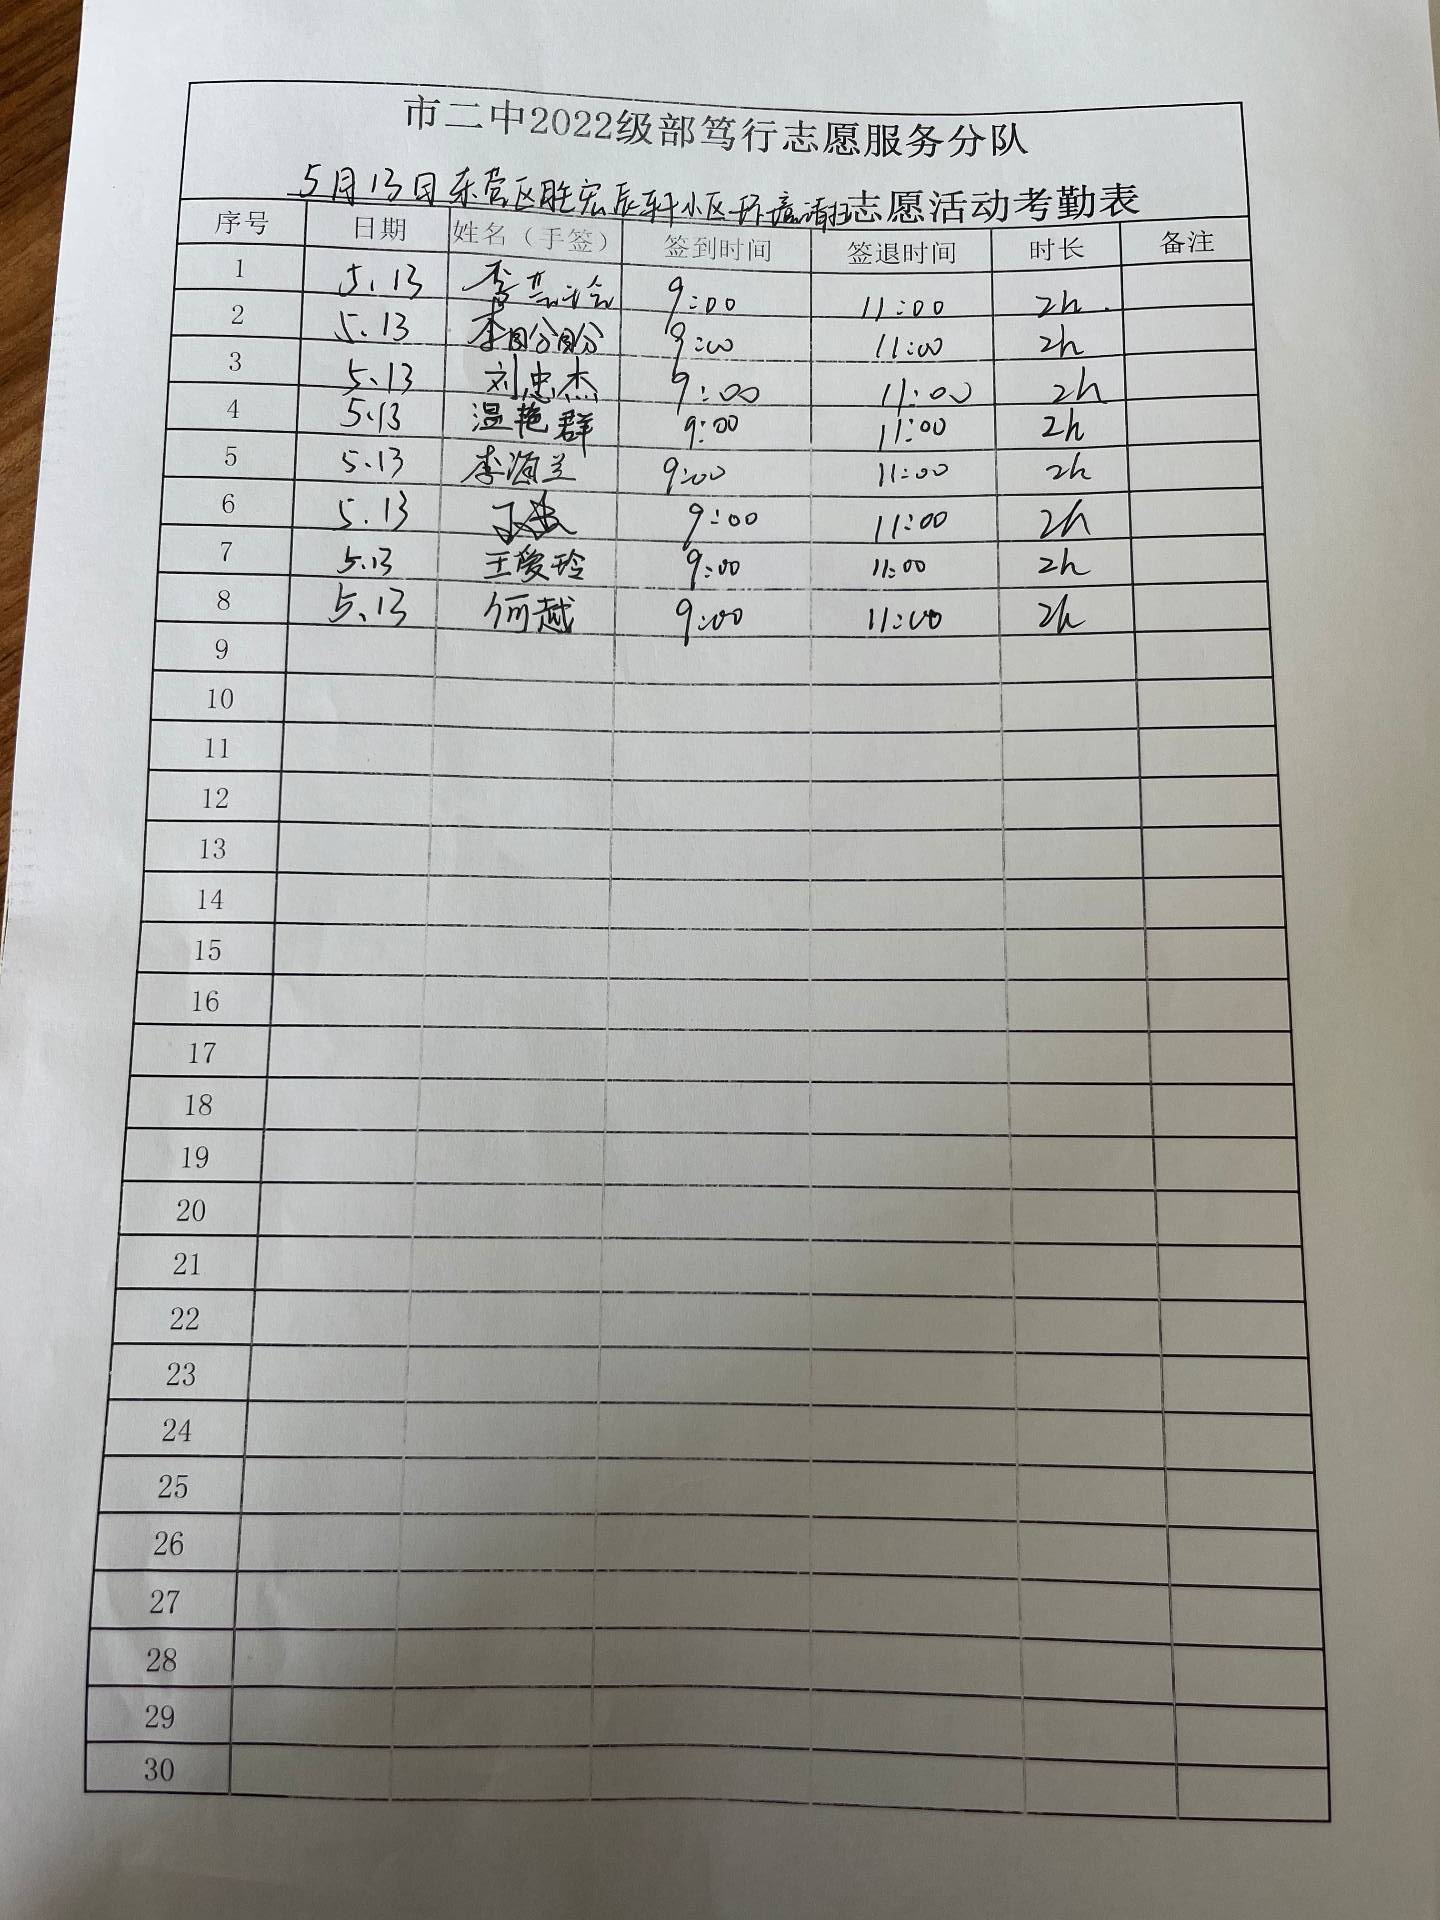 市二中2022级部笃行志愿服务分队
5月13日东营区胜宏辰轩小区环境清扫志愿活动考勤表
序号 日期 姓名（手签） 签到时间 签退时间 时长 备注
1 5.13 李 9:00 11:00 2h
2 5.13 李盼盼 9:00 11:00 2h
3 5.13 刘忠杰 9:00 11:00 2h
4 5.13 温艳群 9:00 11:00 2h
5 5.13 李海兰 9:00 11:00 2h
6 5.13 9:00 11:00 2h
7 5.13 王爱玲 9:00 11:00 2h
8 5.13 何越 9:00 11:00 2h
9
10
11
12
13
14
15
16
17
18
19
20
21
22
23
24
25
26
27
28
29
30